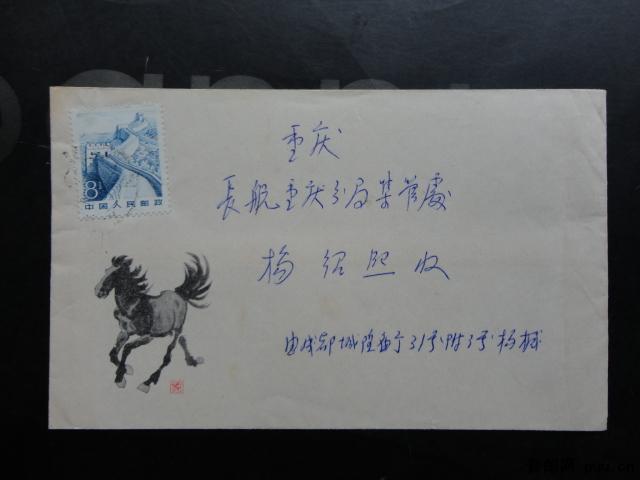 8分
中国人民邮政
重庆
長航重庆分局某管處
杨绍熙收
由成都城隍西方31号附3号杨械